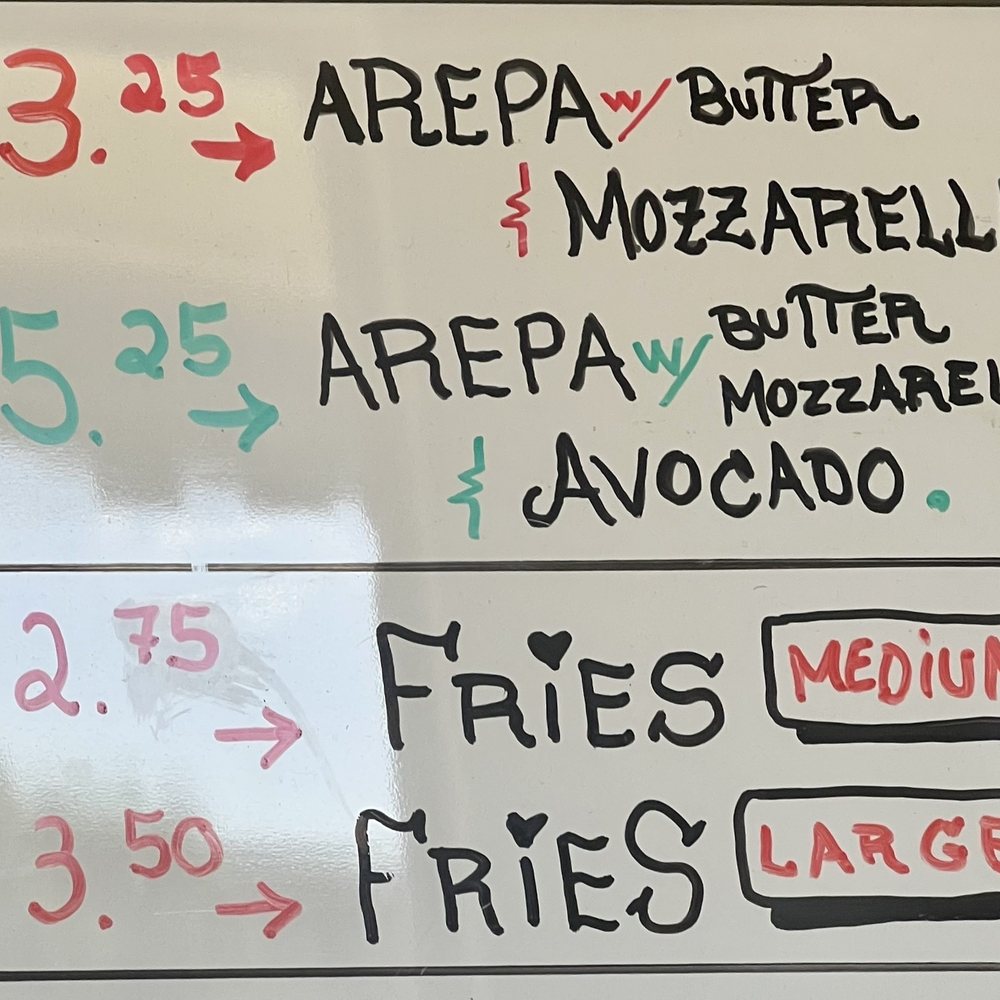 3.25 → AREPA w/ BUTTER
& MOZZARELL
5.25 → AREPA w/ BUTTER
MOZZAREL
& AVOCADO.
2.75 → FRiES MEDiUM
3.50 → FRiES LARGE